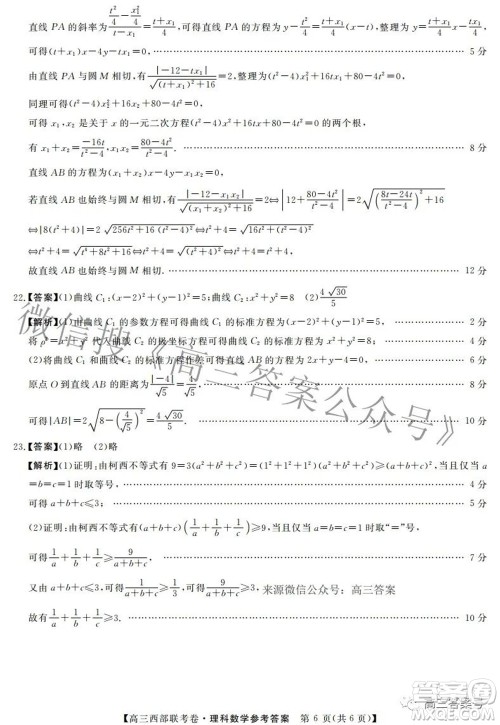 直线 PA 的斜率为 (t²/4 − x₁²/4)/(t−x₁) = (t+x₁)/4，可得直线 PA 的方程为 y−t²/4=(t+x₁)/4(x−t)，整理为
可得(t+x₁)x−4y−tx₁=0. 5 分
由直线 PA 与圆 M 相切，有 |−12−tx₁|/√((t+x₁)²+16)=2，整理为(t²−4)x₁²+16tx₁+80−4t²=0，
同理可得(t²−4)x₂²+16tx₂+80−4t²=0，
可得 x₁,x₂ 是关于 x 的一元二次方程(t²−4)x²+16tx+80−4t²=0 的两个根，
有 x₁+x₂=−16t/(t²−4)，x₁x₂=(80−4t²)/(t²−4). 8 分
直线 AB 的方程为(x₁+x₂)x−4y−x₁x₂=0，
若直线 AB 也始终与圆 M 相切，有 |−12−x₁x₂|/√((x₁+x₂)²+16)=2⇔
⇔|8(t²+4)|=2√(256t²+16(t²−4)²)⇔
故直线 AB 也始终与圆 M 相切. 12 分
22.【答案】(1)曲线 C₁:(x−2)²+(y−1)²=5；曲线 C₂:x²+y²=8 (2)4√30/5
【解析】(1)由曲线 C₁ 的参数方程可得曲线 C₁ 的标准方程为(x−2)²+(y−1)²=5， 2 分
将 ρ²=x²+y² 代入曲线 C₂ 的极坐标方程可得曲线 C₂ 的标准方程为 x²+y²=8. 4 分
(2)将曲线 C₁ 和 C₂ 的标准方程作差可得直线 AB 的方程为 2x+y−4=0， 6 分
原点 O 到直线 AB 的距离为 |−4|/√5=4/√5， 8 分
可得|AB|=2√(8−(4/√5)²)=4√30/5. 10 分
23.【答案】(1)略 (2)略
【解析】(1)证明：由柯西不等式有 9=3(a²+b²+c²)=(1²+1²+1²)(a²+b²+c²)≥(a+b+c)²，当且仅当
a=b=c=1 时取等号， 4 分
可得 a+b+c≤3； 5 分
(2)证明：由柯西不等式可得(a+b+c)(1/a+1/b+1/c)≥9，当且仅当 a=b=c=1 时取“=”号，
可得 1/a+1/b+1/c≥9/(a+b+c)， 7 分
又由 a+b+c≤3，可得 1/(a+b+c)≥1/3，可得 9/(a+b+c)≥3， 9 分
来源微信公众号：高三答案
故有 1/a+1/b+1/c≥3. 10 分
微信搜《高三答案公众号》
【高三西部联考卷·理科数学参考答案 第 6 页(共 6 页)】
高三答案号